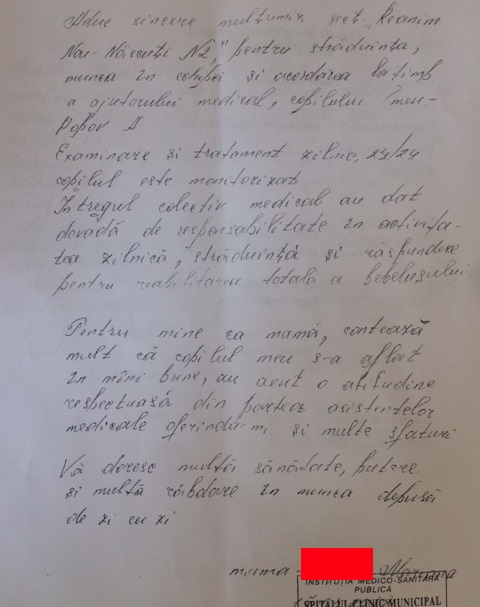 Aduc sincere mulțumiri secț. „Reanim
Nou-Născuți N2," pentru străduința,
munca în echipă și acordarea la timp
a ajutorului medical, copilului meu-
Popov A
Examinare și tratament zilnic, 24/24
copilul este monitorizat
Întregul colectiv medical au dat
dovadă de responsabilitate în activita-
tea zilnică, străduință și răspundere
pentru reabilitarea totală a bebelușului
Pentru mine ca mamă, contează
mult că copilul meu s-a aflat
în mîini bune, au avut o atitudine
respectuasă din partea asistentelor
medicale oferindu-mi și multe sfaturi
Vă doresc multă sănătate, putere
și multă răbdare în munca depusă
de zi cu zi
mama -
INSTITUȚIA MEDICO-SANITARĂ
PUBLICĂ
SPITALUL CLINIC MUNICIPAL